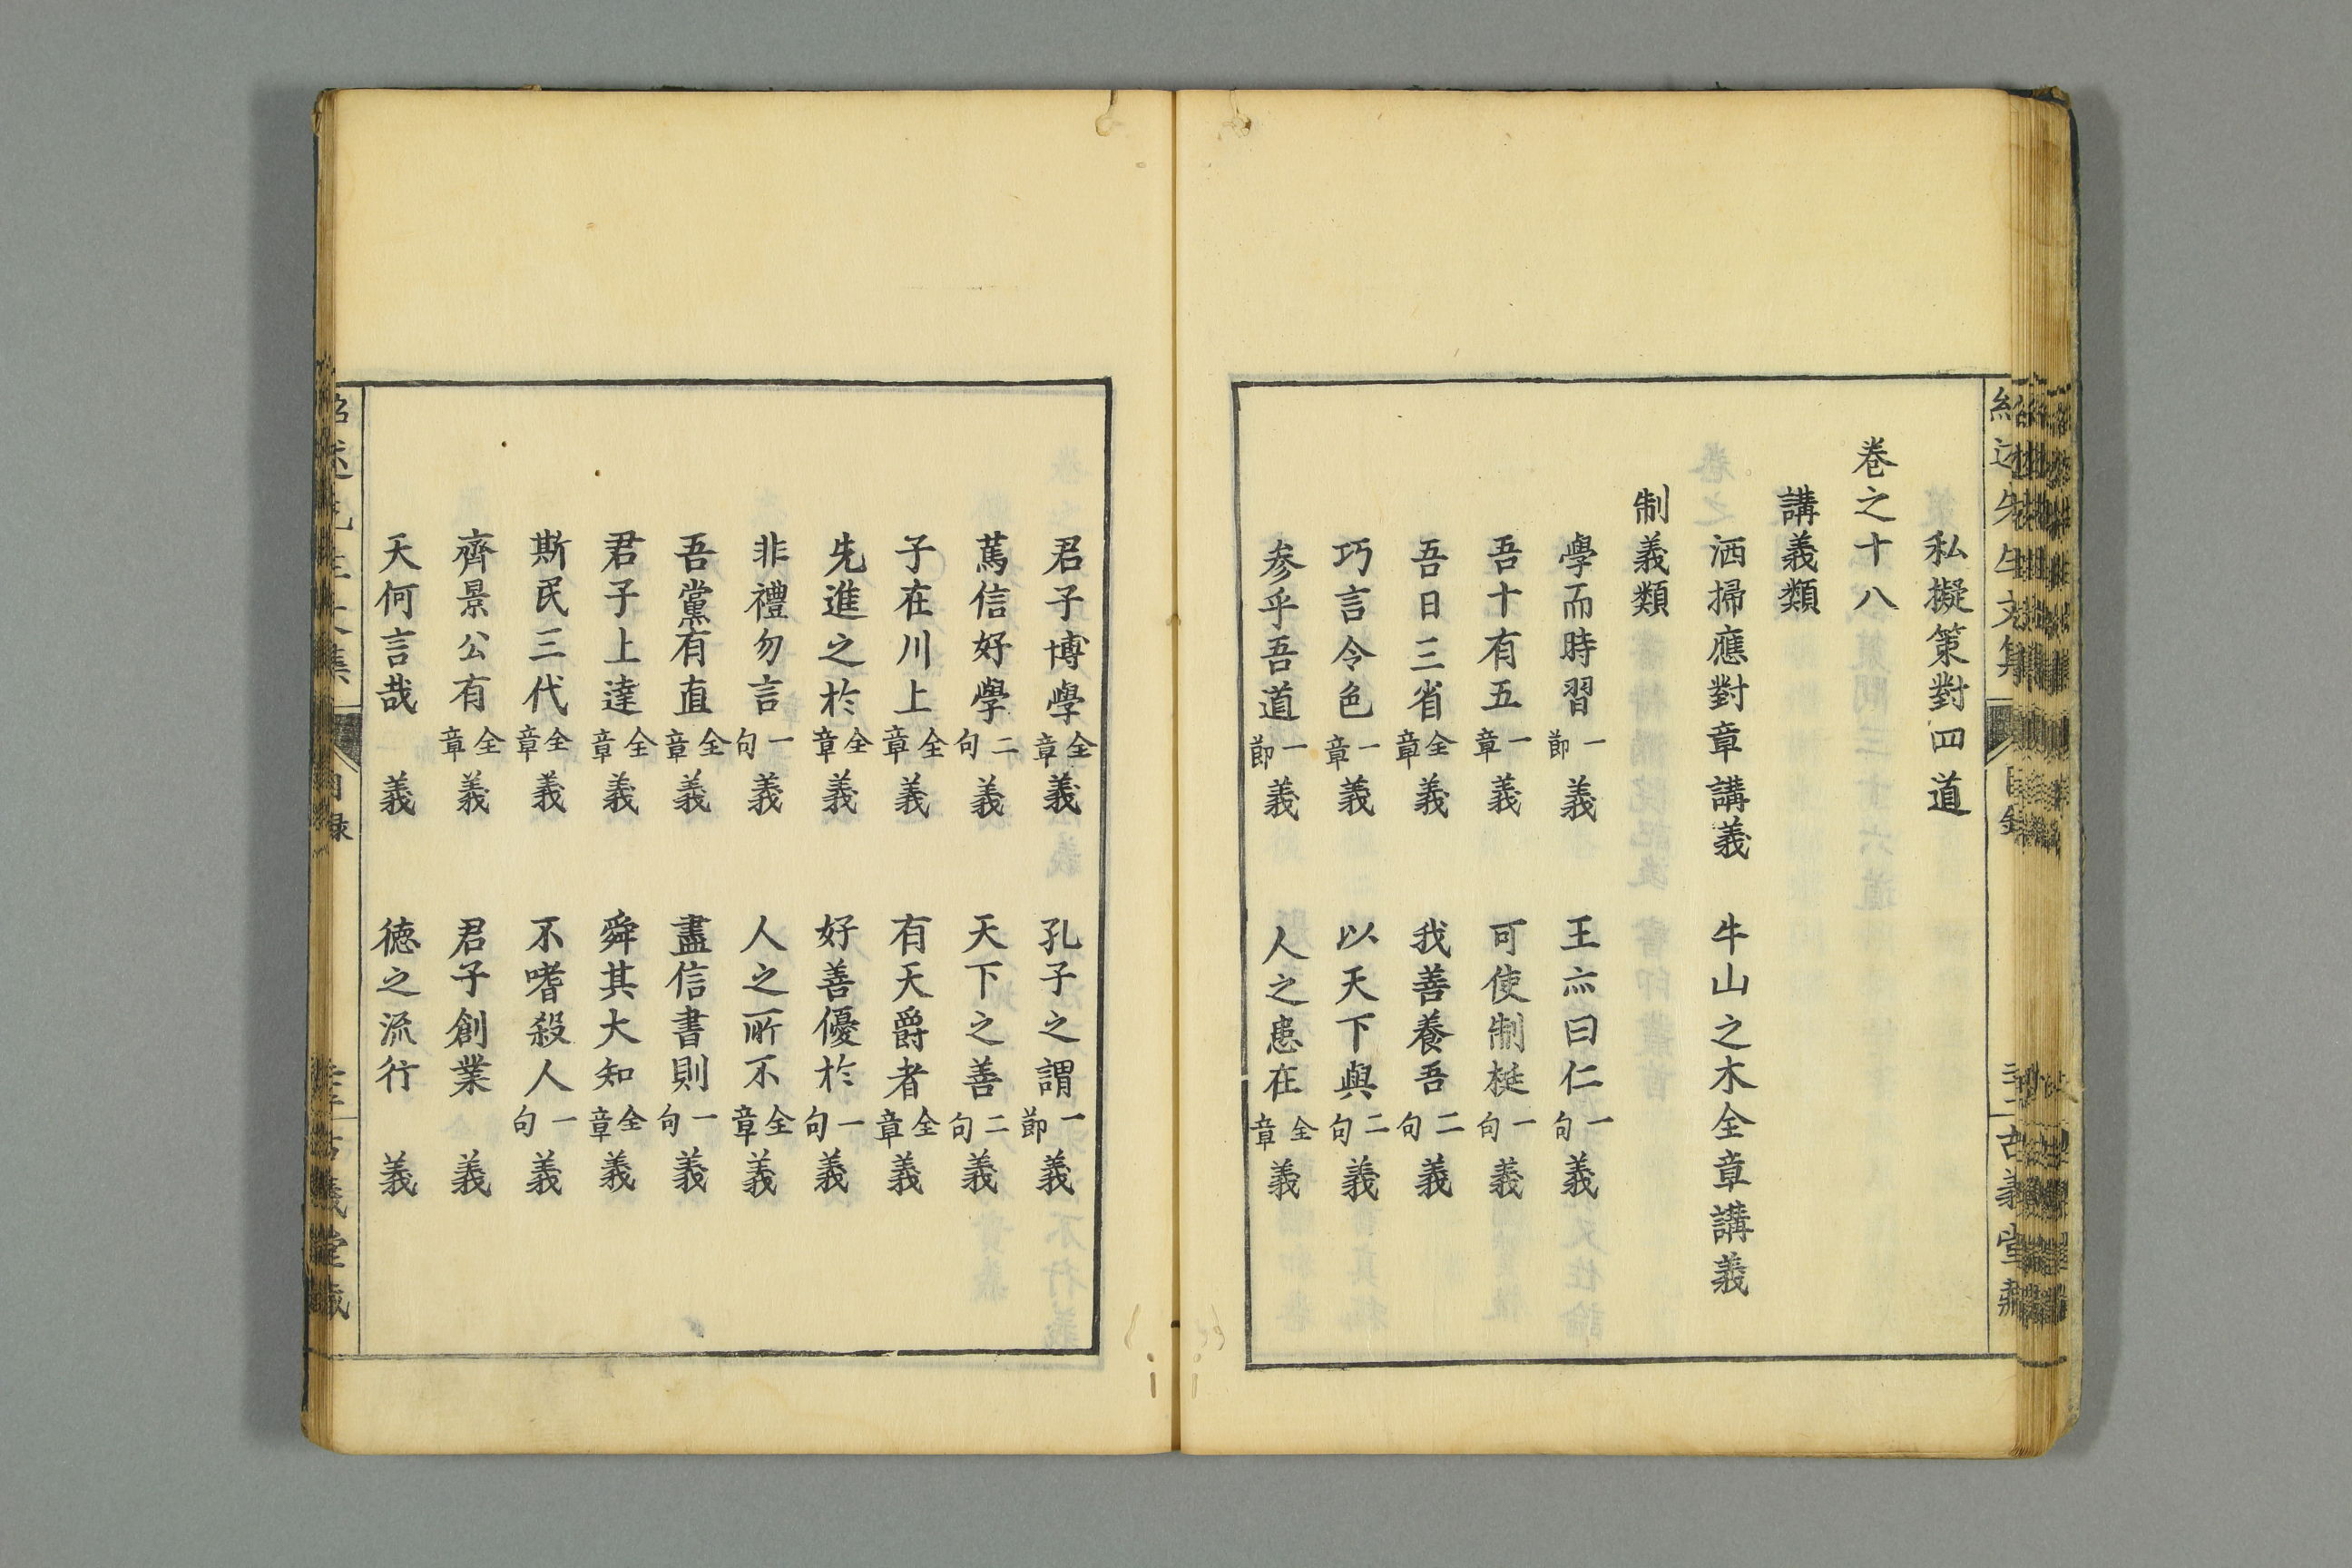 私擬策對四道
卷之十八
講義類
洒掃應對章講義　牛山之木全章講義
制義類
學而時習一節義　王亦曰仁一句義
吾十有五一章義　可使制梃一句義
吾日三省全章義　我善養吾二句義
巧言令色一章義　以天下與二句義
參乎吾道一節義　人之患在全章義
君子博學全章義　孔子之謂一節義
篤信好學二句義　天下之善二句義
子在川上全章義　有天爵者全章義
先進之於全章義　好善優於一句義
非禮勿言一句義　人之所不全章義
吾黨有直全章義　盡信書則一句義
君子上達全章義　舜其大知全章義
斯民三代全章義　不嗜殺人一句義
齊景公有全章義　君子創業義
天何言哉義　德之流行義